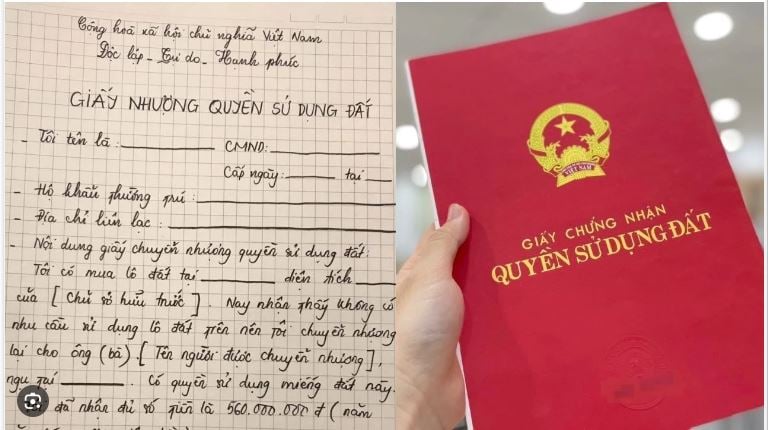 Cộng hoà xã hội chủ nghĩa Việt Nam
Độc lập - Tự do - Hạnh phúc
GIẤY NHƯỢNG QUYỀN SỬ DỤNG ĐẤT
- Tôi tên là: CMND:
Cấp ngày: tại
- Hộ khẩu thường trú:
- Địa chỉ liên lạc:
- Nội dung giấy chuyển nhượng quyền sử dụng đất:
Tôi có mua lô đất tại diện tích
của [Chủ sở hữu trước]. Nay nhận thấy không có
nhu cầu sử dụng lô đất trên nên tôi chuyển nhượng
lại cho ông (bà) [Tên người được chuyển nhượng],
ngụ tại . Có quyền sử dụng miếng đất này.
đã nhận đủ số tiền là 560.000.000 đ (năm
VIỆT NAM
GIẤY CHỨNG NHẬN
QUYỀN SỬ DỤNG ĐẤT